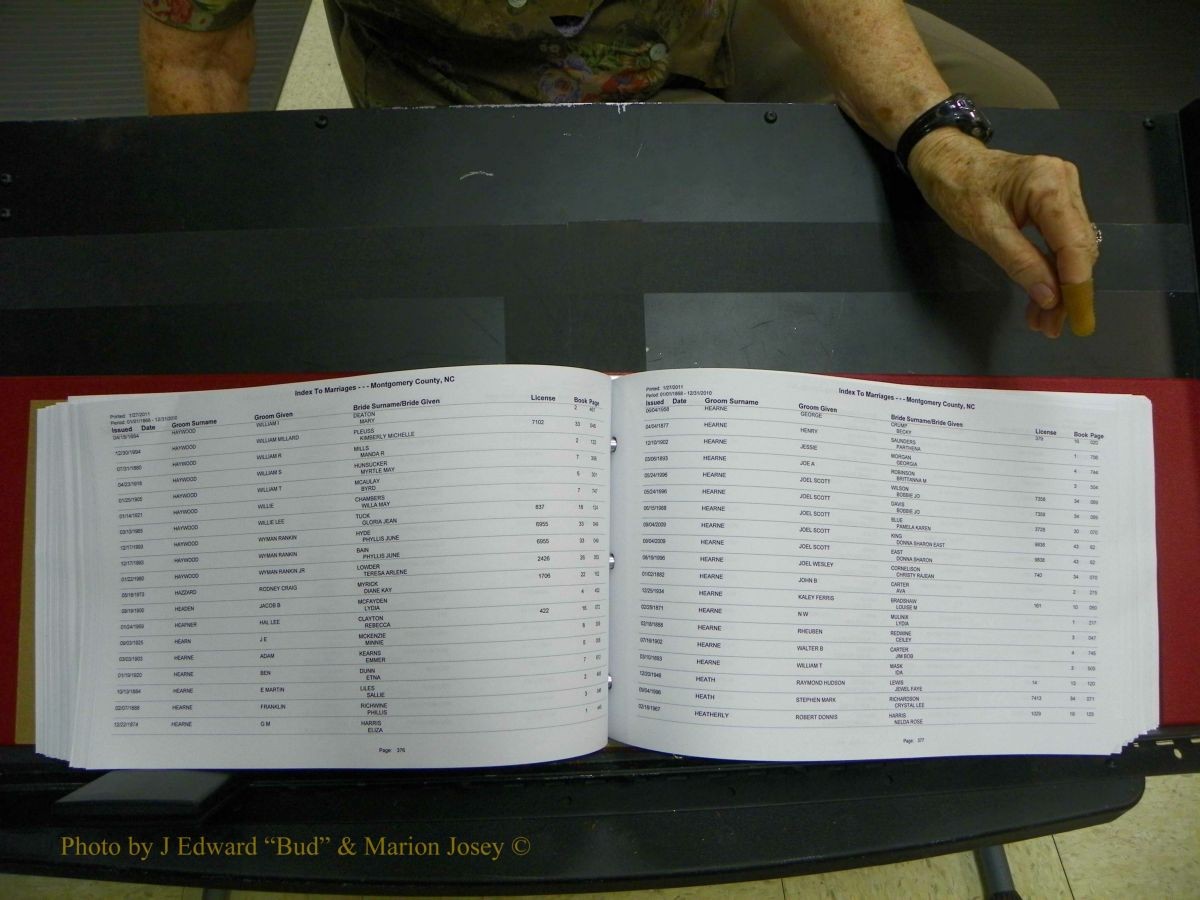 Index To Marriages - - - Montgomery County, NC
Printed: 1/27/2011
Period: 01/01/1868 - 12/31/2010
Issued Date Groom Surname Groom Given Bride Surname/Bride Given License Book Page
HAYWOOD WILLIAM I DEATON 2
MARY
12/30/1994 HAYWOOD WILLIAM MILLARD PLEUSS 7102 33
KIMBERLY MICHELLE
HAYWOOD WILLIAM R MILLS 2
MANDA R
HAYWOOD WILLIAM S HUNSUCKER 7
MYRTLE MAY
HAYWOOD WILLIAM T MCAULAY
BYRD
HAYWOOD WILLIE CHAMBERS 7
WILLA MAY
HAYWOOD WILLIE LEE TUCK 837
GLORIA JEAN
HAYWOOD WYMAN RANKIN HYDE 6955 33
PHYLLIS JUNE
12/17/1993 HAYWOOD WYMAN RANKIN BAIN 6955 33
PHYLLIS JUNE
HAYWOOD WYMAN RANKIN JR LOWDER 2426
TERESA ARLENE
HAZZARD RODNEY CRAIG MYRICK 1706 22
DIANE KAY
HEADEN JACOB B MCFAYDEN 4
LYDIA
HEAFNER HAL LEE CLAYTON 422
REBECCA
HEARN J E MCKENZIE
MINNIE
03/03/1903 HEARNE ADAM KEARNS
EMMER
01/19/1920 HEARNE BEN DUNN 7
ETNA
HEARNE E MARTIN LILES
SALLIE
02/07/1888 HEARNE FRANKLIN RICHWINE 3
PHILLIS
12/22/1874 HEARNE G M HARRIS 1
ELIZA
Page: 376
Index To Marriages - - - Montgomery County, NC
Printed: 1/27/2011
Period: 01/01/1868 - 12/31/2010
Issued Date Groom Surname Groom Given Bride Surname/Bride Given License Book Page
09/04/1958 HEARNE GEORGE CRUMP 379
BECKY
04/04/1877 HEARNE HENRY SAUNDERS 1
PARTHENA
12/10/1902 HEARNE JESSIE MORGAN 4 744
GEORGIA
03/06/1893 HEARNE JOE A ROBINSON 3
BRITTANNA M
05/24/1996 HEARNE JOEL SCOTT WILSON 7358 34
BOBBIE JO
05/24/1996 HEARNE JOEL SCOTT DAVIS 7358 34
BOBBIE JO
HEARNE JOEL SCOTT BLUE 3728
PAMELA KAREN
09/04/2009 HEARNE JOEL SCOTT KING 9838 43 62
DONNA SHARON EAST
09/04/2009 HEARNE JOEL SCOTT EAST 9838 43 62
DONNA SHARON
HEARNE JOEL WESLEY CORNELISON 740 34 070
CHRISTY RAJEAN
01/02/1882 HEARNE JOHN B CARTER 2
AVA
12/25/1934 HEARNE KALEY FERRIS BRADSHAW 161 10
LOUISE M
02/28/1871 HEARNE N W MULINIX 1 217
LYDIA
02/18/1888 HEARNE RHEUBEN REDWINE 3 047
CEILEY
07/16/1902 HEARNE WALTER B CARTER 4 745
JIM BOB
03/10/1893 HEARNE WILLIAM T MASK 3
IDA
12/20/1948 HEATH RAYMOND HUDSON LEWIS 14 13 120
JEWEL FAYE
HEATH STEPHEN MARK RICHARDSON 7413 34 371
CRYSTAL LEE
02/18/1967 HEATHERLY ROBERT DONNIS HARRIS 1029 18
NELDA ROSE
Page: 377
Photo by J Edward “Bud” & Marion Josey ©